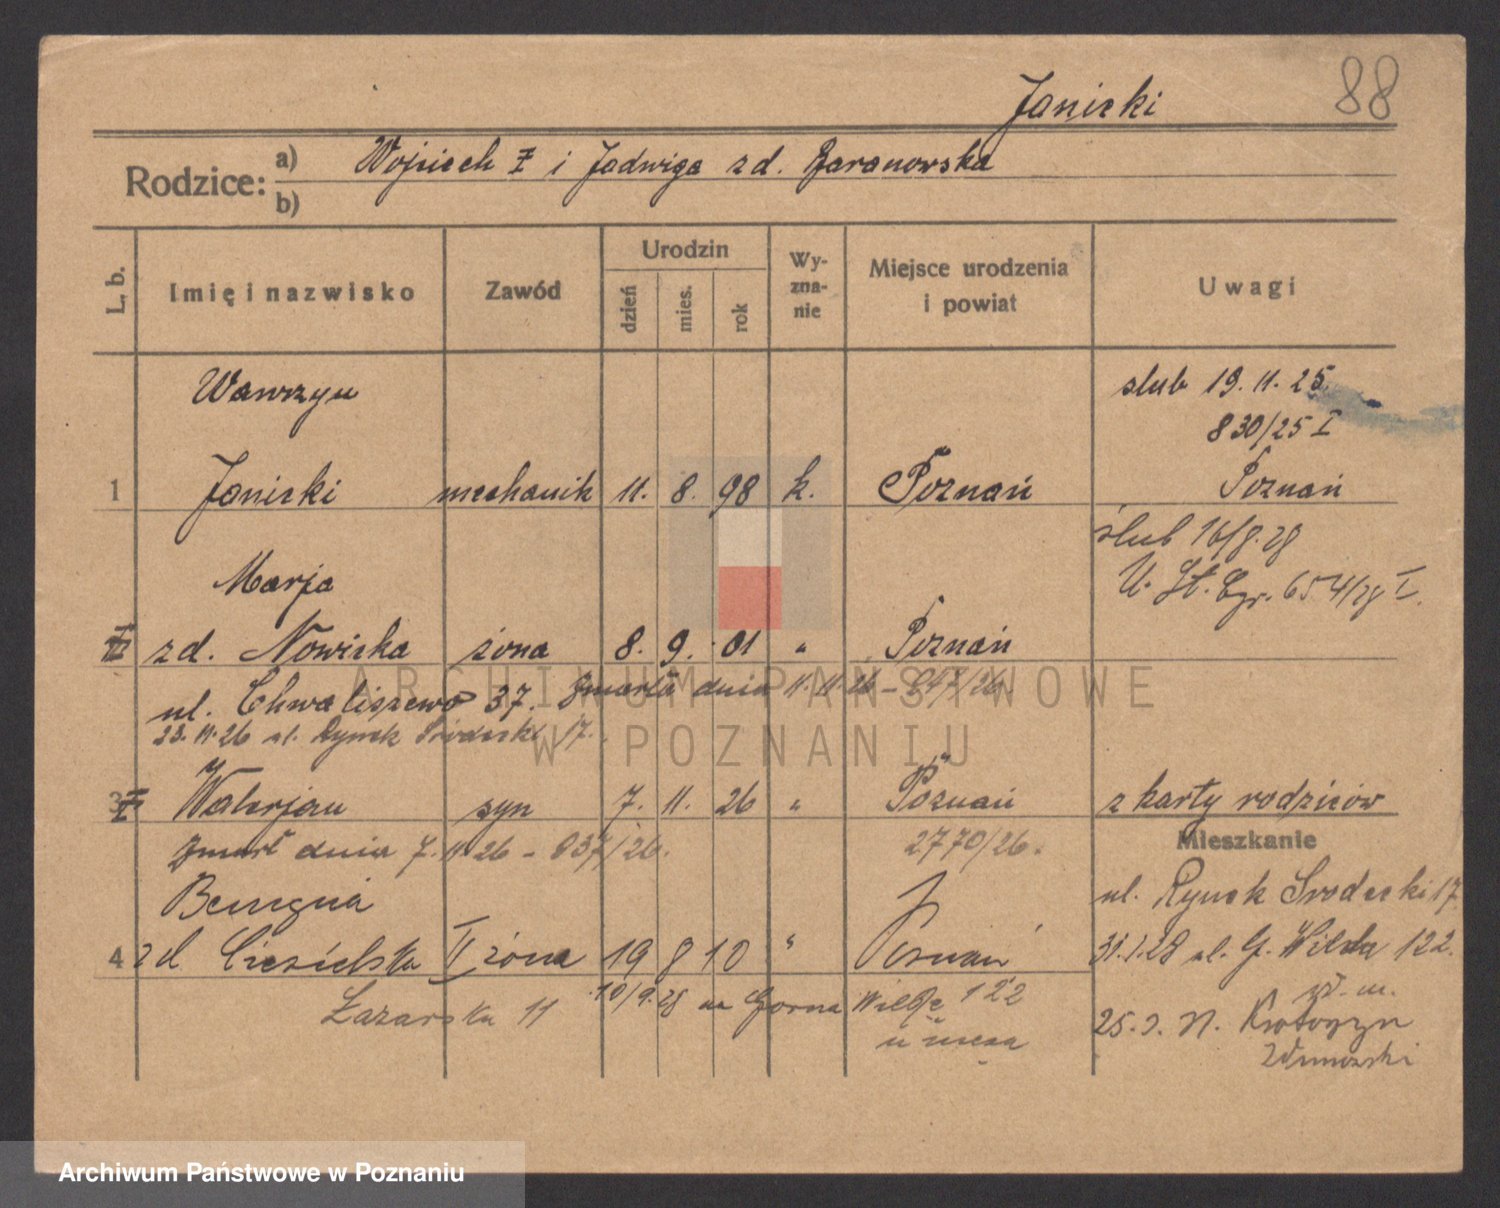 Janicki 88
Rodzice: a) Wojciech i Jadwiga zd. Baranowska
b)
L. b. Imię i nazwisko Zawód Urodzin dzień mies. rok Wy-zna-nie Miejsce urodzenia i powiat Uwagi
Wawrzyn ślub 19. 11. 25
830/25 I
1 Janicki mechanik 11. 8. 98 k. Poznań Poznań
ślub 16/8. 28
Marja U. St. Czr. 654/28 I.
zd. Nowicka żona 8. 9. 01 " Poznań
ul. Chwaliszewo 37. Zmarła dnia 11. 11. 26 - 847/26.
23. 11. 26 ul. Rynek Śródecki 17.
3 Walerjan syn 7. 11. 26 " Poznań z karty rodziców
Zmarł dnia 7. 11 26 - 837/26. 2770/26. Mieszkanie
Benigna ul. Rynek Srodecki 17
4 zd Ciesielska II żona 19 8 10 " Poznań 31.1.28 ul. G. Wilda 122.
Łazarska 11 10/9.28 na Gorna Wilde 122
25. Krotoszyn
ARCHIWUM PAŃSTWOWE
W POZNANIU
Archiwum Państwowe w Poznaniu